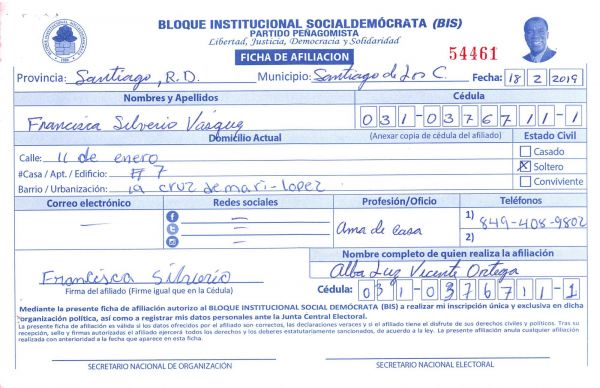 BLOQUE INSTITUCIONAL SOCIALDEMÓCRATA (BIS)
PARTIDO PEÑAGOMISTA
Libertad, Justicia, Democracia y Solidaridad
FICHA DE AFILIACION
54461
Provincia: Santiago, R.D. Municipio: Santiago de Los C. Fecha: 18 2 2019
Nombres y Apellidos Cédula
Francisca Silverio Vásquez 031-0376711-1
Domicilio Actual (Anexar copia de cédula del afiliado) Estado Civil
Calle: 11 de enero Casado
#Casa / Apt. / Edificio: # 7 X Soltero
Barrio / Urbanización: la cruz de mari-lopez Conviviente
Correo electrónico Redes sociales Profesión/Oficio Teléfonos
Ama de casa 1) 849-408-9802
2)
Nombre completo de quien realiza la afiliación
Francisca Silverio Alba Luz Vicente Ortega
Firma del afiliado (Firme igual que en la Cédula) Cédula: 031-0376711-1
Mediante la presente ficha de afiliación autorizo al BLOQUE INSTITUCIONAL SOCIAL DEMÓCRATA (BIS) a realizar mi inscripción única y exclusiva en dicha
organización política, así como a registrar mis datos personales ante la Junta Central Electoral.
La presente ficha de afiliación es válida si los datos ofrecidos por el afiliado son correctos, las declaraciones veraces y si el afiliado tiene el disfrute de sus derechos civiles y políticos. Tras su
recepción, sello y firmas autorizados el afiliado ejercerá todos los derechos y los deberes estatutariamente sancionados, de acuerdo a la ley. La presente afiliación anula cualquier afiliación
realizada con anterioridad a la fecha que aparece en esta ficha.
SECRETARIO NACIONAL DE ORGANIZACIÓN SECRETARIO NACIONAL ELECTORAL